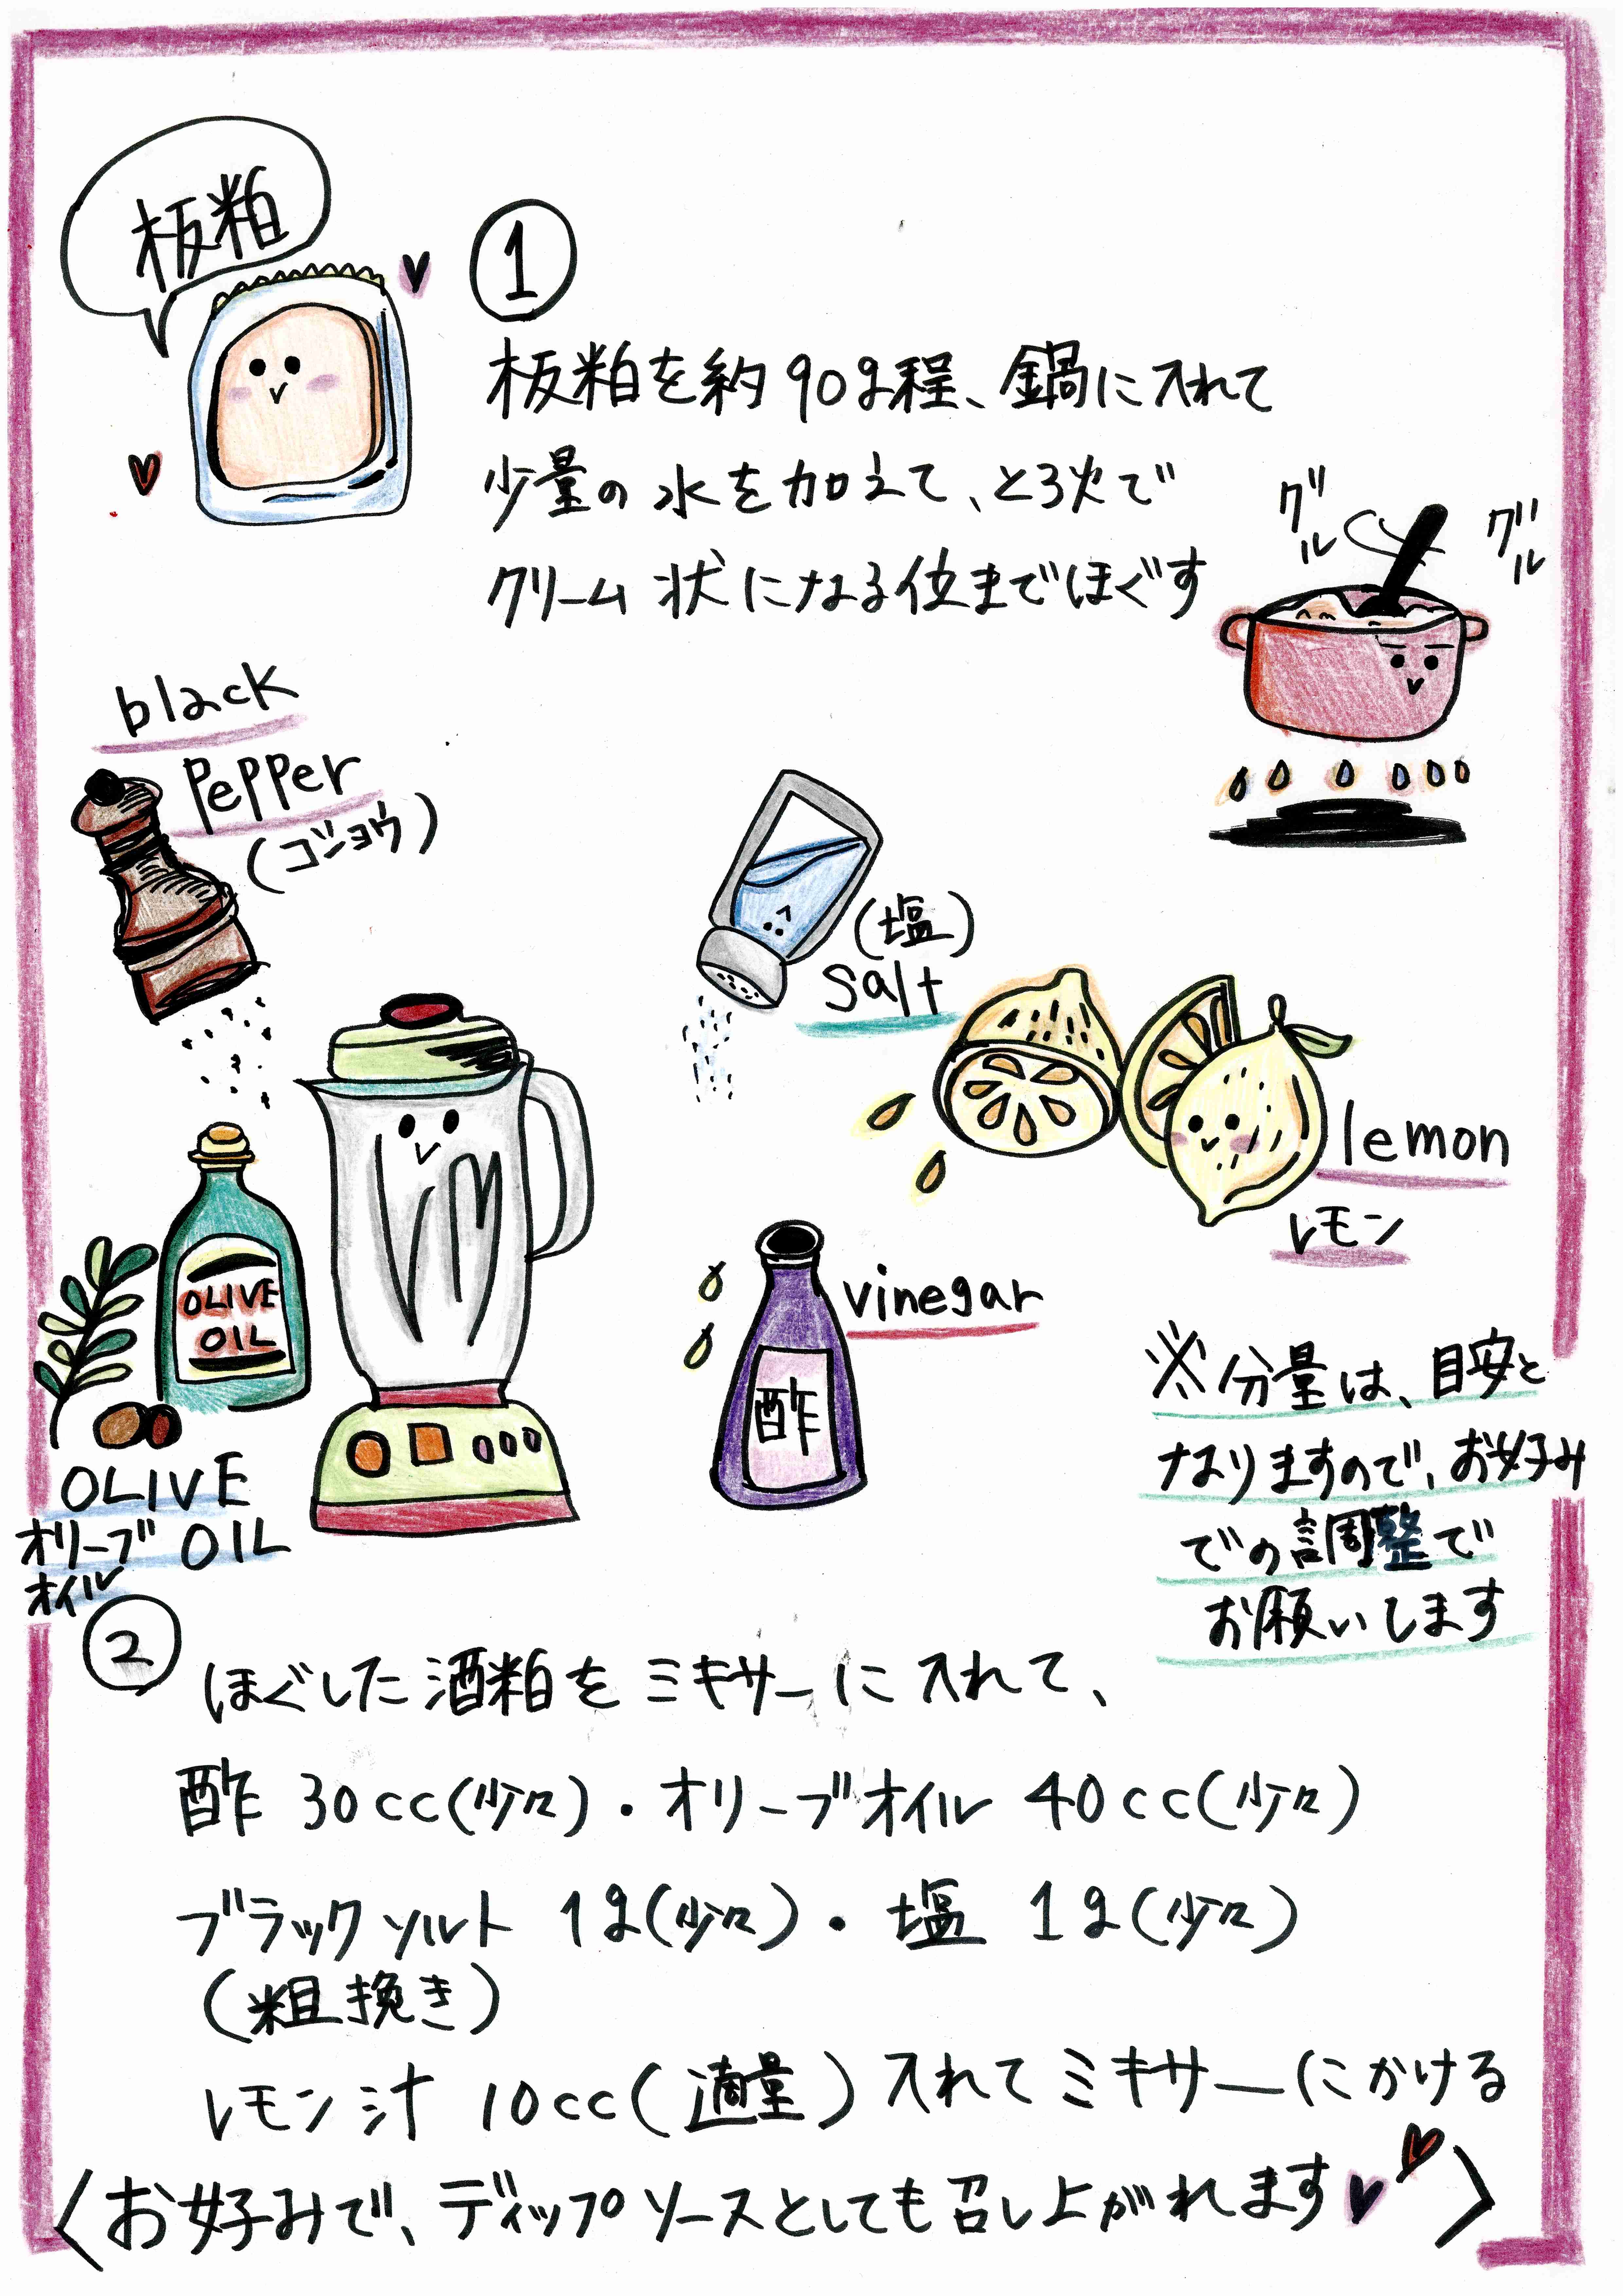 板粕
①
板粕を約90g程、鍋に入れて
少量の水を加えて、とろ火で
クリーム状になる位までほぐす
グル
グル
black
pepper
(コショウ)
(塩)
salt
lemon
レモン
OLIVE
OIL
vinegar
酢
OLIVE
オリーブ OIL
オイル
※分量は、目安と
なりますので、お好み
での調整で
お願いします
②
ほぐした酒粕をミキサーに入れて、
酢 30cc(少々)・オリーブオイル 40cc(少々)
ブラックソルト 1g(少々)・塩 1g(少々)
(粗挽き)
レモン汁 10cc(適量)入れてミキサーにかける
〈お好みで、ディップソースとしても召し上がれます♥♥〉